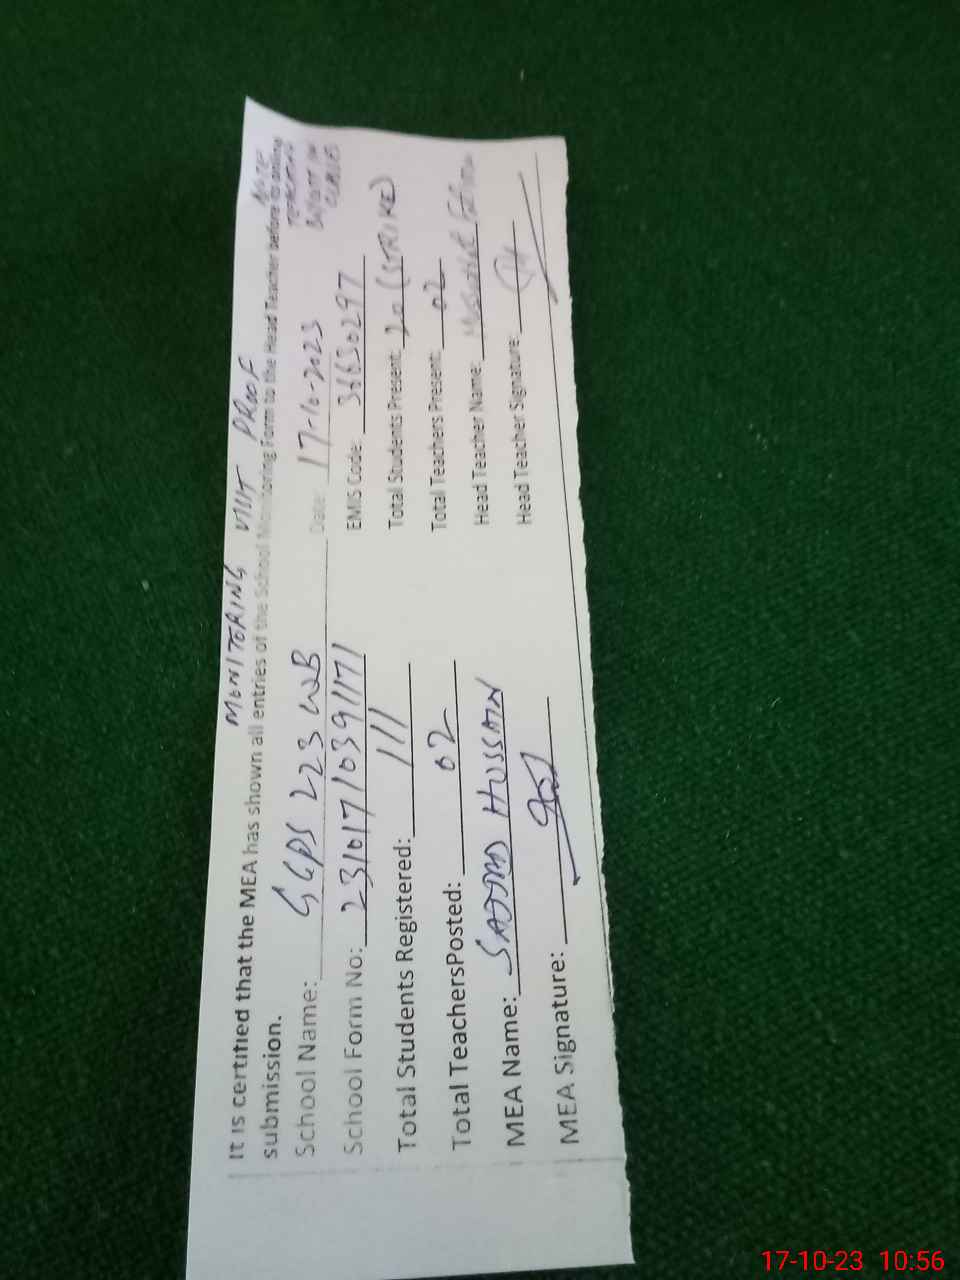 MONITORING VISIT PROOF
NOTE
TEACHERS
BOYCOTT IN
CLASSES
It is certified that the MEA has shown all entries of the School Monitoring Form to the Head Teacher before its online
submission.
School Name: GGPS 223 WB Date: 17-10-2023
School Form No: 231017103911171 EMIS Code: 36650297
Total Students Registered: 111 Total Students Present: 20 (STRIKE)
Total TeachersPosted: 02 Total Teachers Present: 02
MEA Name: SAJJAD HUSSAIN Head Teacher Name:
MEA Signature: Head Teacher Signature:
17-10-23 10:56